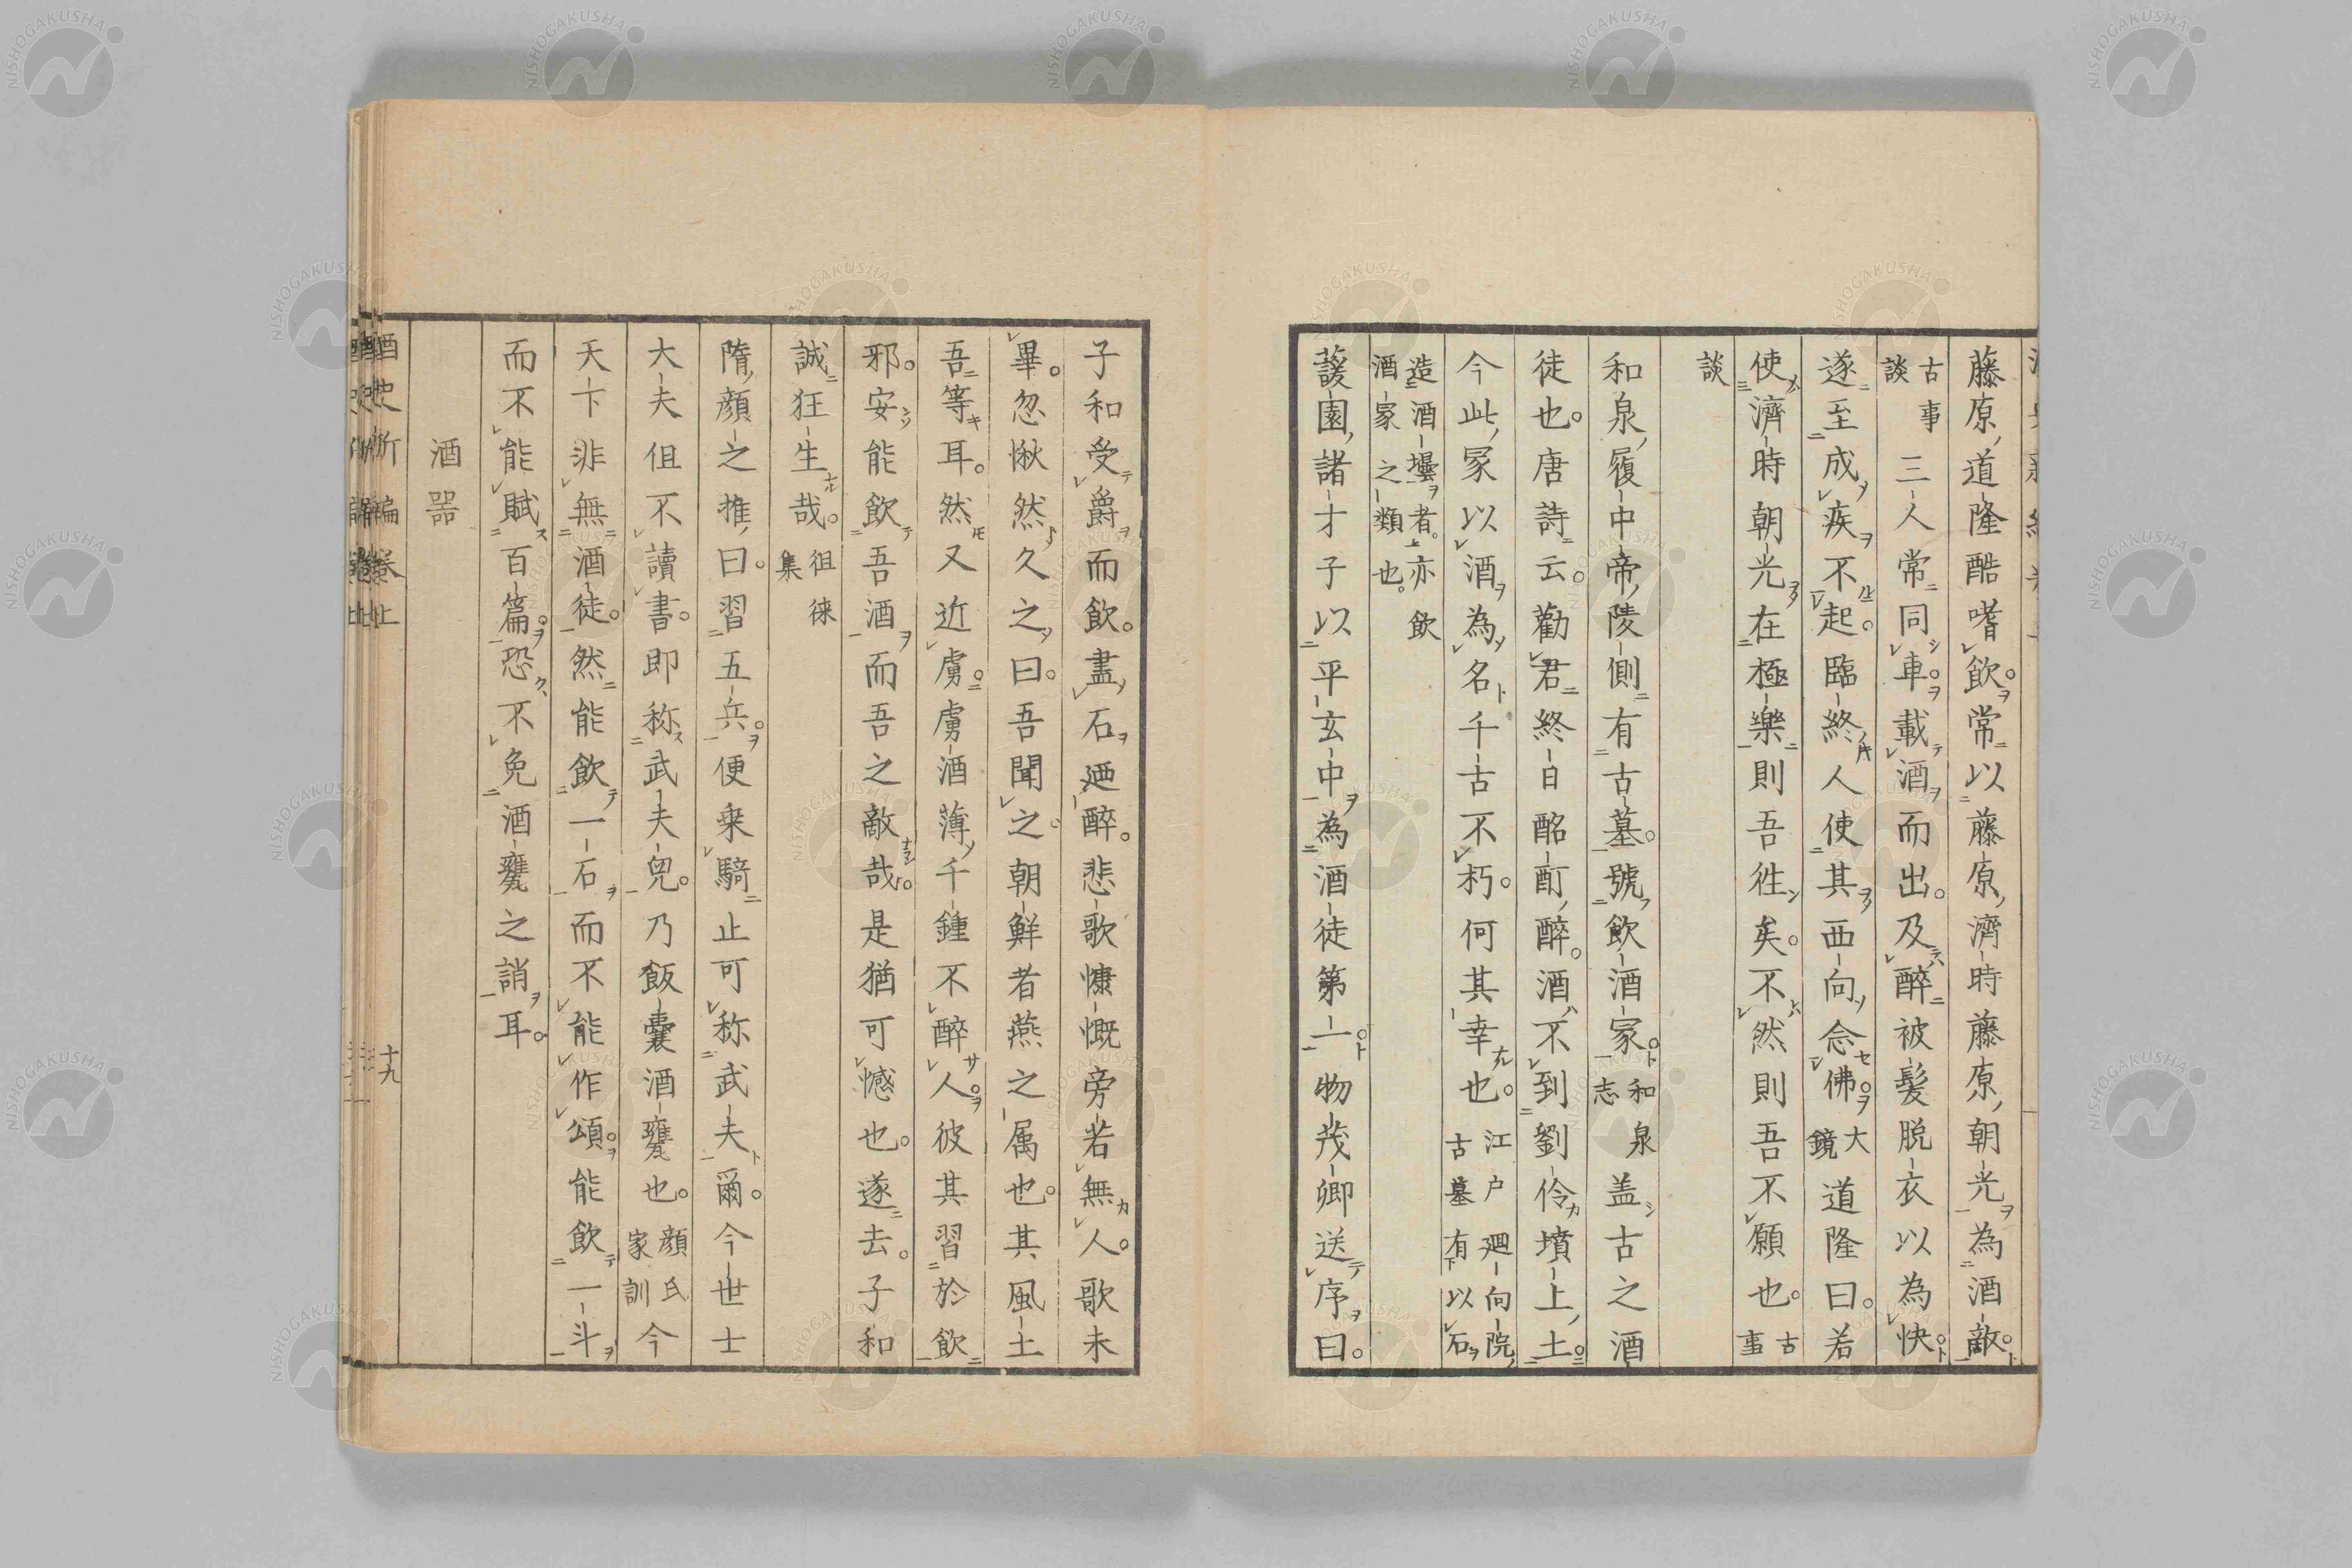 藤原道隆酷嗜飲。常以藤原濟時藤原朝光為酒敵。
古事談三人常同車。載酒而出。及醉被髪脱衣以為快。
遂至成疾不起。臨終人使其西向念佛。大鏡道隆曰。若
使濟時朝光在極樂則吾徃矣。不然則吾不願也。古事
談
和泉履中帝陵側有古墓。號飲酒冢。和泉志盖古之酒
徒也。唐詩云。勸君終日酩酊醉。酒不到劉伶墳上土。
今此冢以酒為名千古不朽。何其幸也。江戸廻向院古墓有以石
造酒壜者。亦飲酒家之類也。
蘐園諸才子以平玄中為酒徒第一。物茂卿送序曰。
子和受爵而飲。盡石廼醉。悲歌慷慨旁若無人。歌未
畢。忽愀然久之曰。吾聞之朝鮮者燕之属也。其風土
吾等耳。然又近虜。虜酒薄千鍾不醉人。彼其習於飲
邪。安能飲吾酒而吾之敵哉。是猶可憾也。遂去。子和
誠狂生哉。徂徠集
隋顔之推曰。習五兵。便乗騎止可称武夫爾。今世士
大夫但不讀書。即称武夫兒。乃飯囊酒甕也。顔氏家訓今
天下非無酒徒。然能飲一石而不能作頌。能飲一斗
而不能賦百篇。恐不免酒甕之誚耳。
酒器
酒史新編卷上
十九
NISHOGAKUSHA